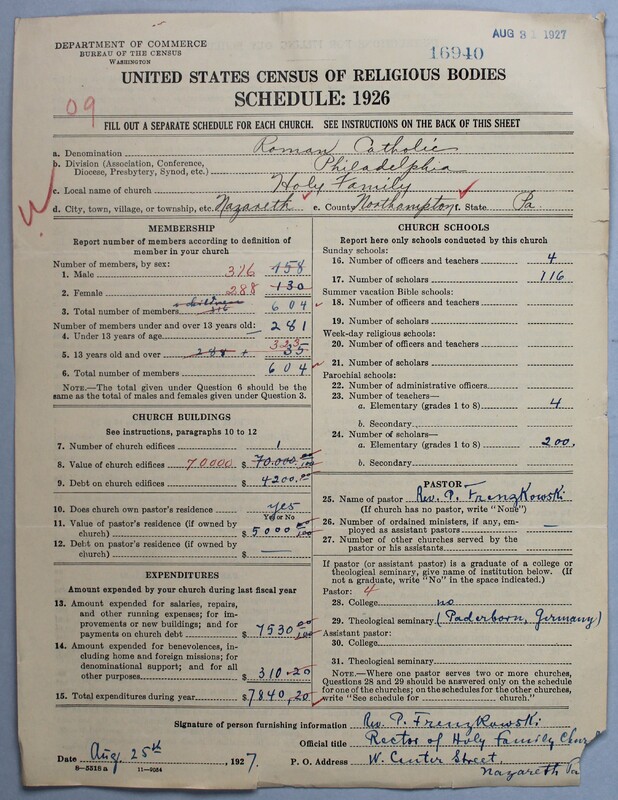 AUG 31 1927
DEPARTMENT OF COMMERCE
BUREAU OF THE CENSUS
WASHINGTON
16940
UNITED STATES CENSUS OF RELIGIOUS BODIES
SCHEDULE: 1926
09
FILL OUT A SEPARATE SCHEDULE FOR EACH CHURCH. SEE INSTRUCTIONS ON THE BACK OF THIS SHEET
a. Denomination Roman Catholic
b. Division (Association, Conference, Diocese, Presbytery, Synod, etc.) Philadelphia
c. Local name of church Holy Family
d. City, town, village, or township, etc. Nazareth e. County Northampton f. State Pa
MEMBERSHIP
Report number of members according to definition of
member in your church
Number of members, by sex:
1. Male 316 158
2. Female 288 130
children
316
3. Total number of members 604
Number of members under and over 13 years old:
4. Under 13 years of age 281
323
5. 13 years old and over 288 + 35
6. Total number of members 604
NOTE.—The total given under Question 6 should be
same as the total of males and females given under Question 3.
CHURCH BUILDINGS
See instructions, paragraphs 10 to 12
7. Number of church edifices 1
8. Value of church edifices 70000 $ 70.000.00/100
9. Debt on church edifices $ 4200.00
10. Does church own pastor's residence yes
Yes or No
11. Value of pastor's residence (if owned by
church) $ 5000 00/100
12. Debt on pastor's residence (if owned by
church) $ —
EXPENDITURES
Amount expended by your church during last fiscal year
13. Amount expended for salaries, repairs,
and other running expenses; for im-
provements or new buildings; and for
payments on church debt $ 7530 00/100
14. Amount expended for benevolences, in-
cluding home and foreign missions; for
denominational support; and for all
other purposes $ 310.20
15. Total expenditures during year $ 7840,20
CHURCH SCHOOLS
Report here only schools conducted by this church
Sunday schools:
16. Number of officers and teachers 4
17. Number of scholars 116
Summer vacation Bible schools:
18. Number of officers and teachers
19. Number of scholars
Week-day religious schools:
20. Number of officers and teachers
21. Number of scholars
Parochial schools:
22. Number of administrative officers
23. Number of teachers—
a. Elementary (grades 1 to 8) 4
b. Secondary
24. Number of scholars—
a. Elementary (grades 1 to 8) 200.
b. Secondary
PASTOR
25. Name of pastor Rev. P. Frenzkowski
(If church has no pastor, write "None")
26. Number of ordained ministers, if any, em-
ployed as assistant pastors —
27. Number of other churches served by the
pastor or his assistants
If pastor (or assistant pastor) is a graduate of a college or
theological seminary, give name of institution below. (If
not a graduate, write "No" in the space indicated.)
Pastor: 4
28. College no
29. Theological seminary (Paderborn, Germany)
Assistant pastor:
30. College
31. Theological seminary
NOTE.—Where one pastor serves two or more churches,
Questions 28 and 29 should be answered only on the schedule
for one of the churches; on the schedules for the other churches,
write "See schedule for church."
Signature of person furnishing information Rev. P. Frenzkowski
Official title Rector of Holy Family
Date Aug. 25th, 1927. P. O. Address W. Center Street,
Nazareth Pa
8—5518 a 11—9034